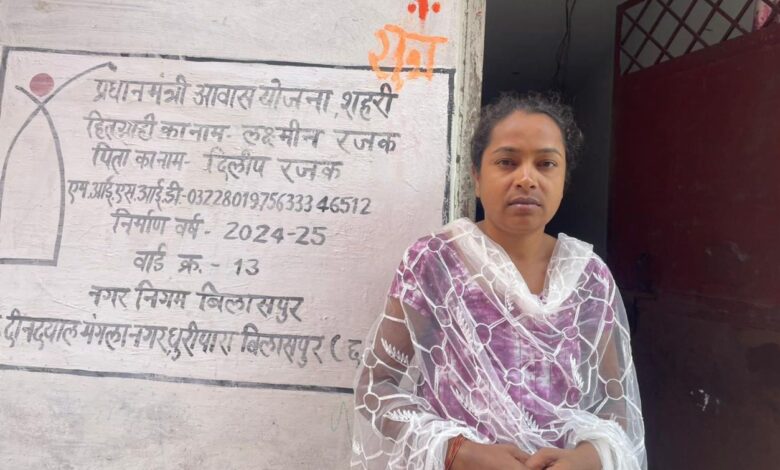 शुभ
प्रधानमंत्री आवास योजना, शहरी
हितग्राही का नाम- लक्ष्मीन रजक
पिता का नाम- दिलीप रजक
एम.आई.एस.आई.डी-0322801975633346512
निर्माण वर्ष- 2024-25
वार्ड क्र.- 13
नगर निगम बिलासपुर
दीनदयाल मंगला नगर, धुरीपारा बिलासपुर (छ